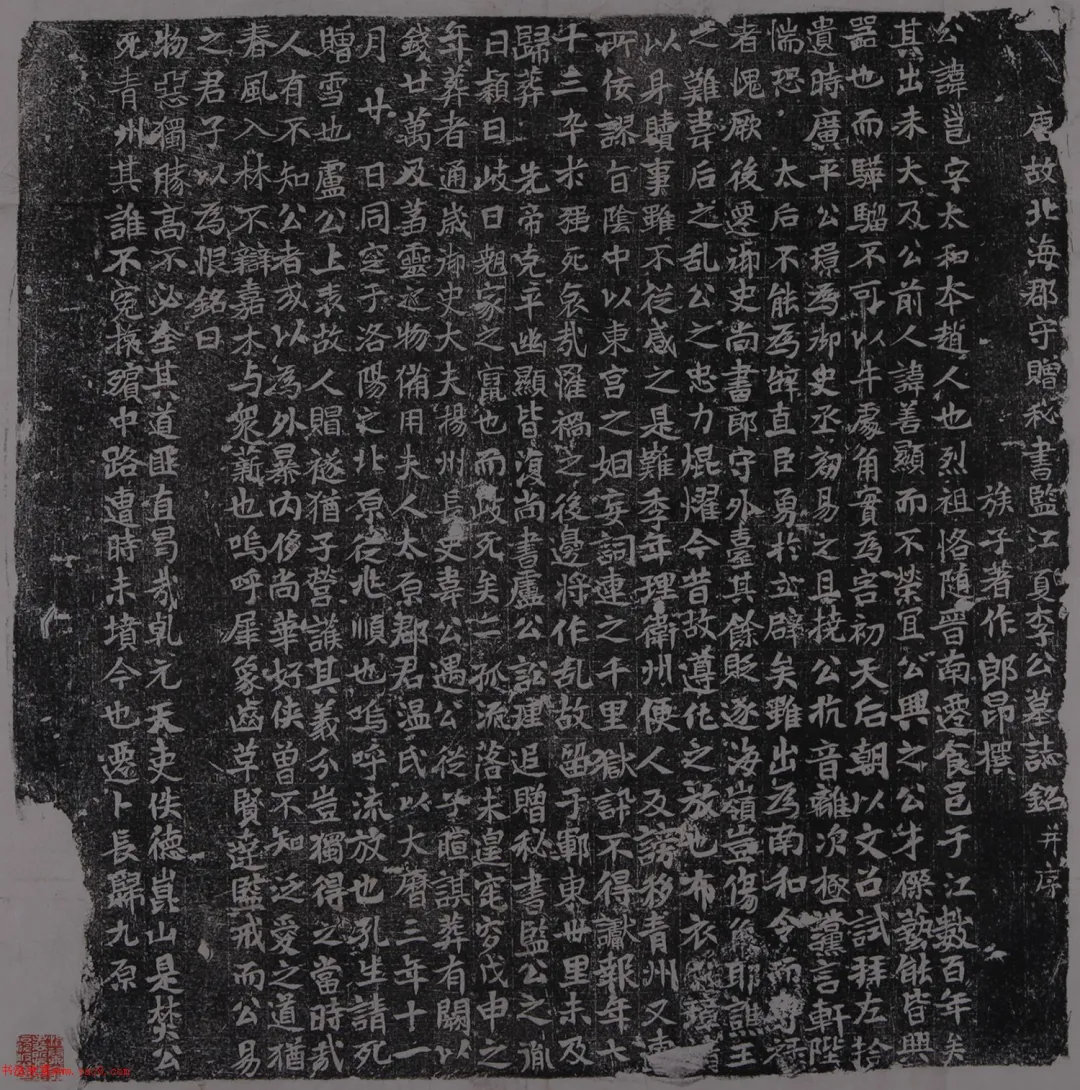 唐故北海郡守贈秘書監江夏李公墓誌銘并序
族子著作郎昂撰
公諱邕字太和本趙人也烈祖恪随晉南遷食邑于江數百年矣
其出未大及公前人諱善顯而不榮宜公興之公才傑藝能皆興
器也而驊騮不可以牛處角實為害初天后朝以文召試拜左拾
遺時廣平公璟為御史丞劾易之且撓公抗音離次極黨言軒陛
惴恐太后不能為解直臣勇於立辟矣雖出為南和令而
者愧厥後遷御史尚書郎守外臺其餘貶逐海嶺豈傷奚耶譙王
之難韋后之乱公之忠力焜燿今昔故遵化之放也布衣
以身贖事雖不從感之是難季年理衛州使人及謗移青州又
所佞謬旨陰中以東宮之姻妄詞連之千里獄訊不得讞報年七
十三卒於强死哀哉罹禍之後邊將作乱故留于鄆東卅里未及
歸葬先帝克平幽顯皆復尚書盧公訟理追贈秘書監公之胤
曰穎曰岐曰翹家之寘也而岐死矣二孤流落未遑窀穸戊申
年葬者通歲御史大夫揚州長史韋公遇公從子暄謀葬有闕以
錢廿萬及蒭靈迄物備用夫人太原郡君温氏以大曆三年十一
月廿日同窆于洛陽之北原從兆順也嗚呼流放也孔生請死
贈雪也盧公上表故人賵禭猶子營護其義分豈獨得之當時哉
人有不知公者或以為外暴内侈尚華好俠曾不知泛愛之道猶
春風入林不辯嘉木与衆薪也嗚呼犀象齒革賢監戒而公易
之君子以為恨銘曰
物惡獨勝高不必全其道匪直曷哉乾元天吏佚德崑山是焚公
死青州其誰不寃權殯中路遭時未墳今也遷卜長歸九原